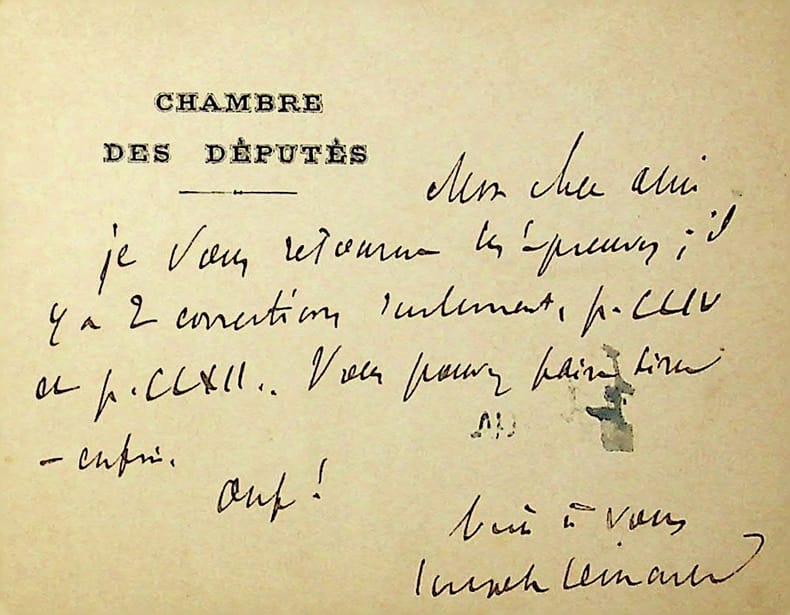 CHAMBRE
DES DÉPUTÉS
Mon cher ami
je vous retourne les épreuves ; il
y a 2 corrections seulement, p. CCIV
et p. CCXII.. Vous pouvez faire tirer
– enfin.
Ouf !
bien à vous
Joseph Reinach